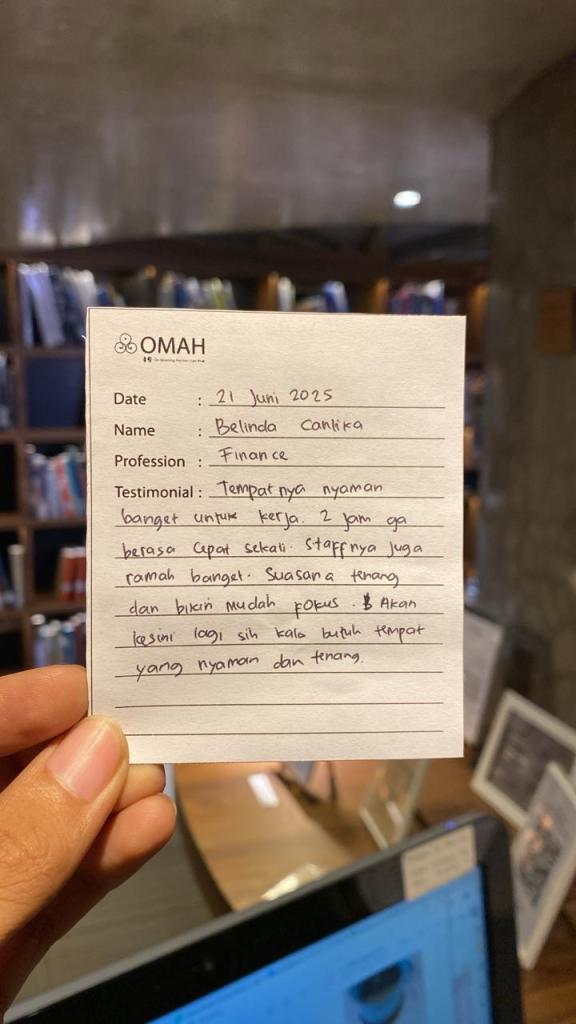 OMAH
Date : 21 Juni 2025
Name : Belinda Cantika
Profession : Finance
Testimonial : Tempatnya nyaman
banget untuk kerja. 2 jam ga
berasa cepat sekali. Staffnya juga
ramah banget. Suasana tenang
dan bikin mudah fokus. Akan
kesini lagi sih kalo butuh tempat
yang nyaman dan tenang.